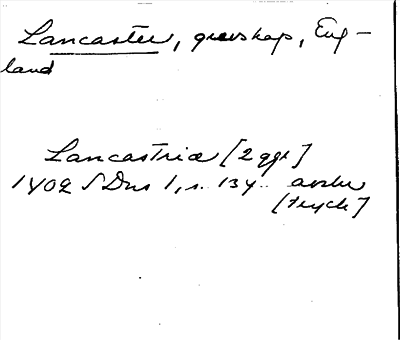 Lancaster, grevskap, Eng-
land
Lancastria [2 ggr]
1402 SDns 1, s. 134. avskr
[tryck]